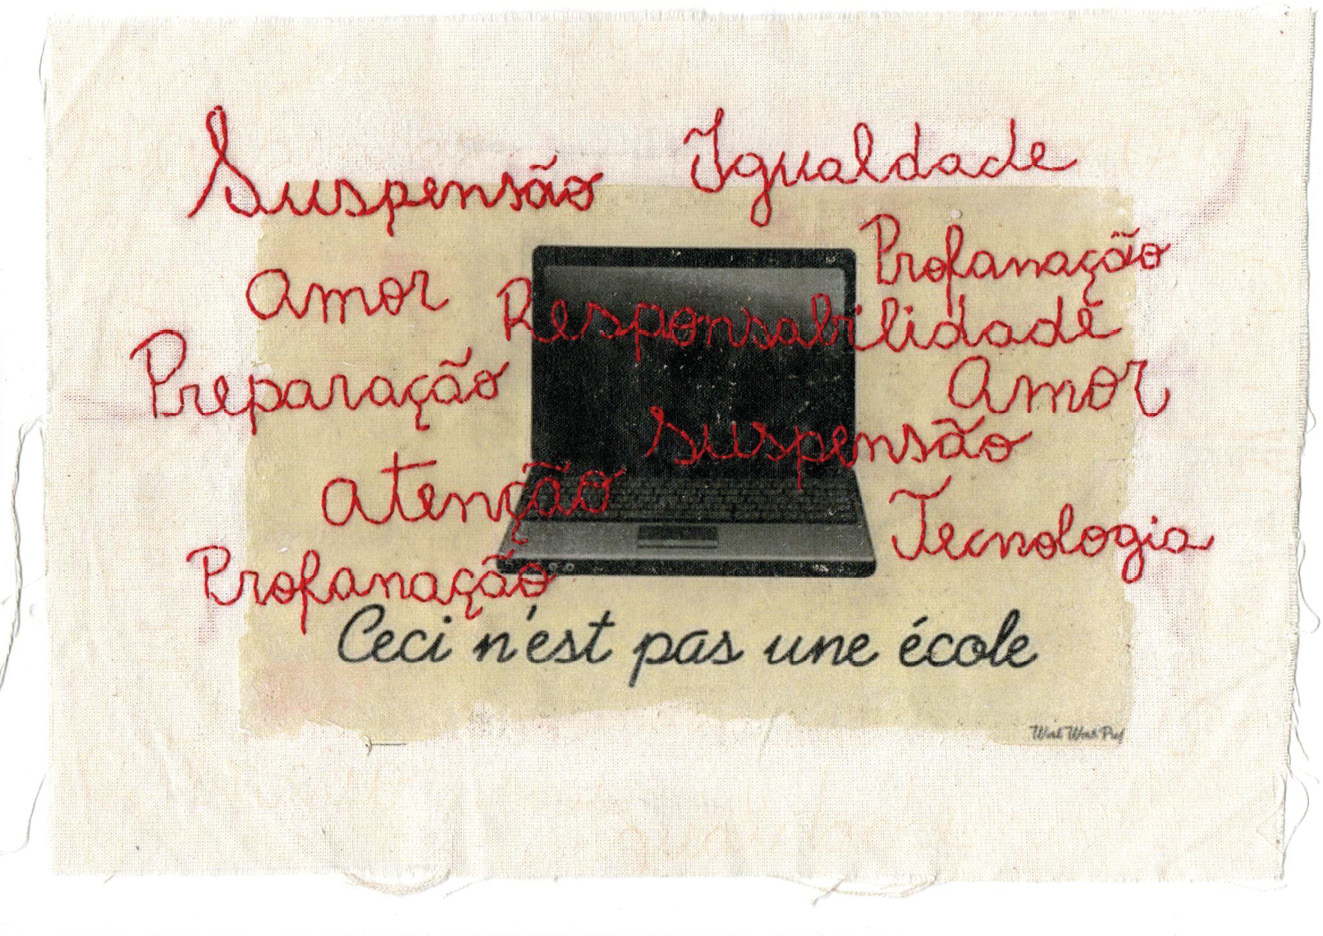 Suspensão
Igualdade
Profanação
Amor
Responsabilidade
Preparação
Amor
Suspensão
atenção
Tecnologia
Profanação
Ceci n'est pas une école